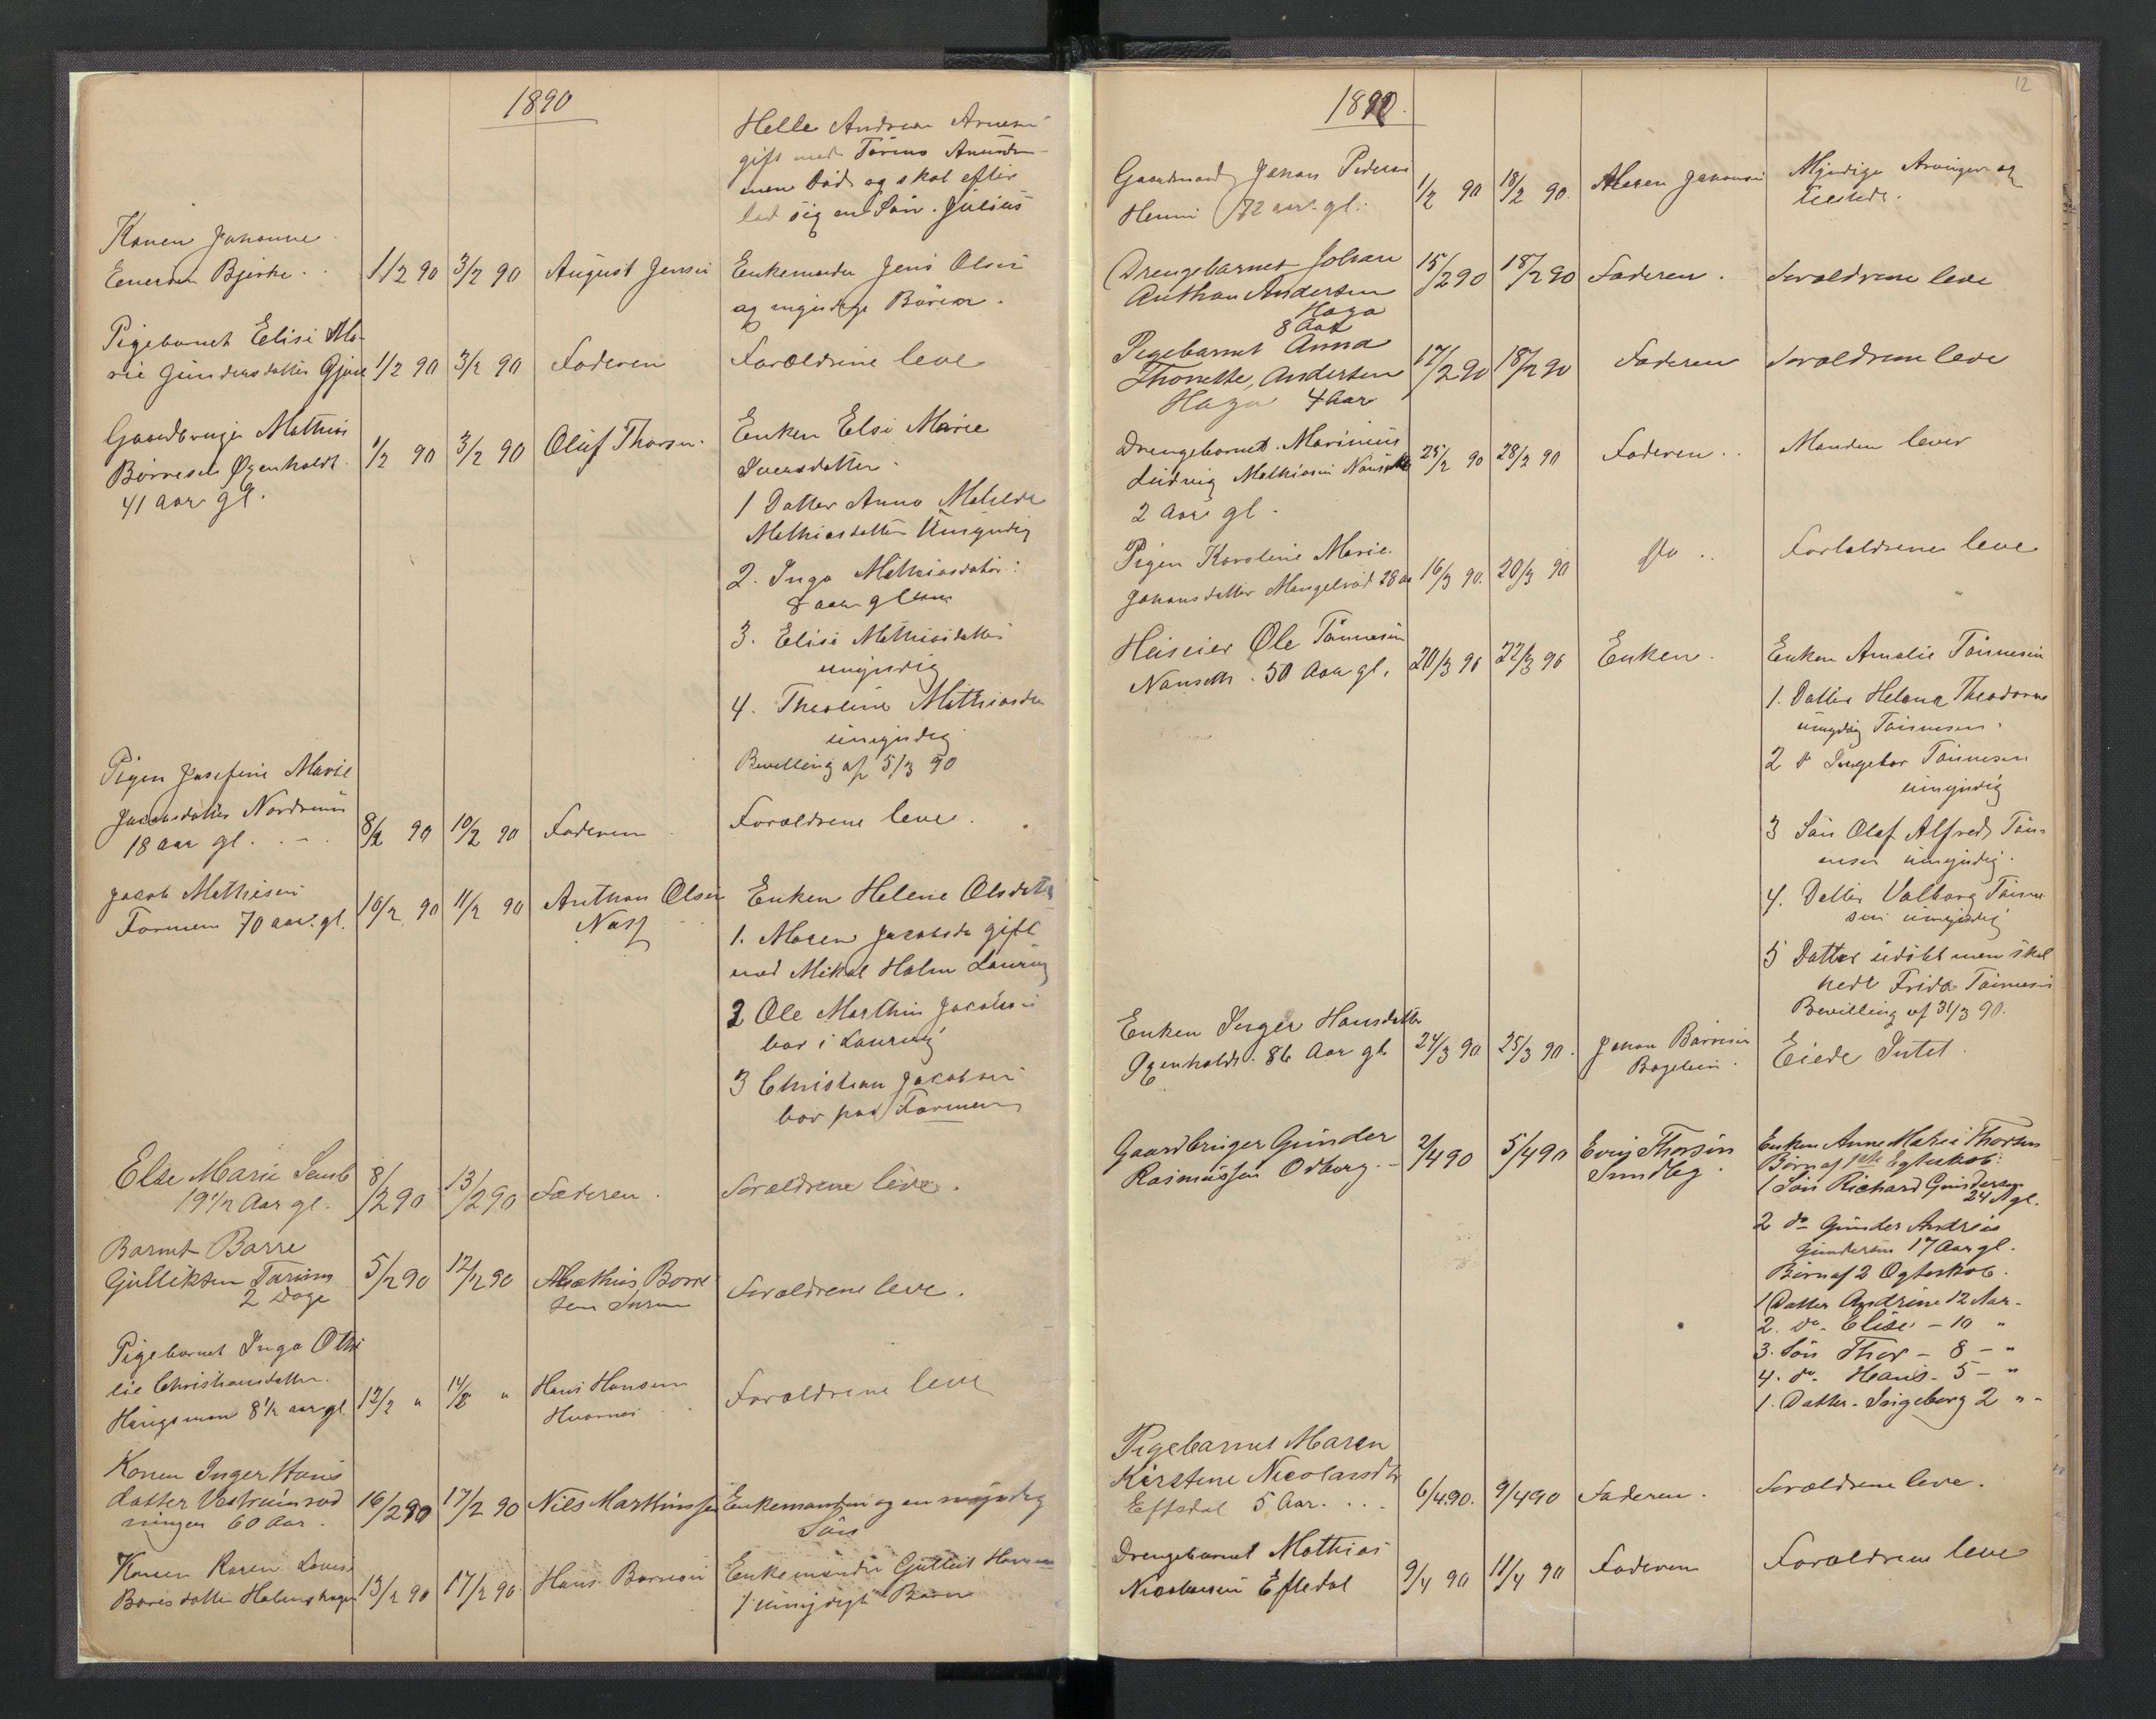 1890
Helle Andrea Arnesen
gift med
men død og skal efter
lod sig en Søn. Julius
Konen Johanne
Enersen Bjerke . . 1/2 90 3/2 90 August Jensen Enkemanden Jens Olsen
og myndige Börn.
Pigebarnet Elise Ma-
rie Gundersdatter 1/2 90 3/2 90 Faderen Forældrene leve
Gaardbruger Mathias Enken Else Marie
Börresen Ögenholdt 1/2 90 3/2 90 Oluf Thorsen. Iversdatter.
41 Aar gl. 1 Datter Anna Matilde
Mathiasdatter Umyndig
2. Inga Mathiasdatter.
8 aar gl
3. Elise Mathiasdatter
umyndig
4. Theoline Mathiasdtr
umyndig
Bevilling af 5/3 90
Pigen Josefine Marie
Jacobsdatter Nordrum
18 aar gl. . - . 8/2 90 10/2 90 Faderen Forældrene leve.
Jacob Mathisen 10/2 90 11/2 90 Anthon Olsen Enken Helene Olsdatter
Formen 70 aar gl. Nass
1. Maren Jacobsdr gift
med Mikal Holm Laurvig
2 Ole Marthin Jacobsen
bor i Laurvig
3 Christian Jacobsen
bor paa Formen
Else Marie Semb 8/2 90 13/2 90 Faderen. Forældrene leve.
19 1/2 Aar gl.
Barnet Børre
Gulliksen 5/2 90 12/2 90 Mathis Borre Forældrene leve.
2 Dage sen
Pigebarnet Inga Othi
lie Christiansdatter.
8 1/2 aar gl 12/2 " 14/2 " Hans Hansen Forældrene leve
Konen Inger Hans
datter 16/2 90 17/2 90 Nils Marthinssen Enkemanden og en myndig
60 Aar. Sön
Konen Karen Lovise Enkemanden Gulleik
Bores datter 13/2 90 17/2 90 Hans Borresen 1 umyndigt Barn
12
1890.
Gaardmand Johan Pedersen 1/2 90 18/2 90. Maren Johansen Myndige Arvinger og
72 aar gl.
Drengebarnet Johan 15/2 90 18/2 90 Faderen. Forældrene leve
Anthon Andersen
Haga
8 Aar
Pigebarnet Anna
Thonette, Andersen 17/2 90 18/2 90 Faderen Forældrene leve
Haga 4 Aar
Drengebarnet Marinius
Ludvig Mathiasen 25/2 90 28/2 90 Faderen.. Manden lever
2 Aar gl.
Pigen Karoline Marie
Johansdatter 28 aar 16/3 90. 20/3 90 do .. Forældrene leve
Huseier Ole Tönnesen
Nanseth. 50 Aar gl. 20/3 90 22/3 90 Enken. Enken Amalie Tönnesen
1. Datter Helena Theodora
umyndig Tönnesen.
2 do Ingebor Tönnesen
umyndig
3 Sön Olaf Alfred Tön-
nesen umyndig.
4. Datter Valborg Tönne
sen umyndig
5 Datter udöbt men skal
hede Frida Tönnesen
Bevilling af 31/3 90.
Enken Inger Hansdatter
Ögenholdt. 86 Aar gl 24/3 90 25/3 90. Johan Börresen Eiede Intet.
Gaardbruger Gunder 2/4 90 5/4 90 Thorsen Enken Anne Marie Thorsen
Rasmussen Odberg. - Sundby. Börn af 1ste Egteskab.
1 Sön Richard Gundersen
24 A gl.
2 do Gunder Andreas
Gundersen 17 Aar gl.
Börn af 2 Egteskab.
1 Datter Andrine 12 Aar-
2. do- Elise - 10 "
3. Sön Thor - 8 - "
4. do. Hans - 5 - "
1. Datter - Ingeborg 2 " -
Pigebarnet Maren
Kirstine Nicolaisdtr 6/4 90. 9/4 90 Faderen. Forældrene leve.
Eftedal 5 Aar. . . .
Drengebarnet Mathias
Nicolaisen Eftedal 9/4 90 11/4 90 Faderen Forældrene leve